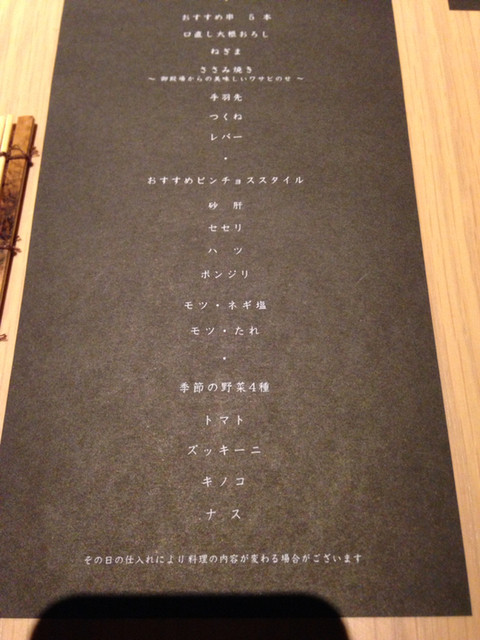 おすすめ串 5 本
口直し大根おろし
ねぎま
ささみ焼き
～ 御殿場からの美味しいワサビのせ ～
手羽先
つくね
レバー
・
おすすめピンチョススタイル
砂 肝
セセリ
ハ ツ
ボンジリ
モツ・ネギ塩
モツ・たれ
・
季節の野菜4種
トマト
ズッキーニ
キノコ
ナ ス
その日の仕入れにより料理の内容が変わる場合がございます